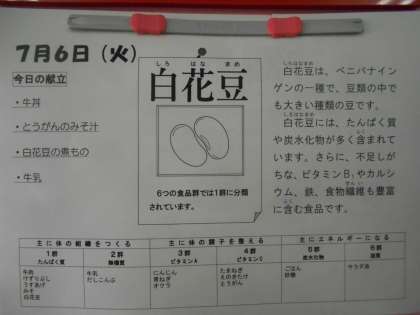 7月6日（火）
今日の献立
・牛丼
・とうがんのみそ汁
・白花豆の煮もの
・牛乳
しろ はな まめ
白花豆
6つの食品群では1群に分類
されています。
しろはなまめ
白花豆は、ベニバナイン
ゲンの一種で、豆類の中で
も大きい種類の豆です。
しろはなまめ
白花豆には、たんぱく質
や炭水化物が多く含まれて
います。さらに、不足しが
ちな、ビタミンB₁やカルシ
ウム、鉄、食物繊維も豊富
に含む食品です。
主に体の組織をつくる 主に体の調子を整える 主にエネルギーになる
1群 2群 3群 4群 5群 6群
たんぱく質 無機質 ビタミンA ビタミンC 炭水化物 脂質
牛肉 牛乳 にんじん たまねぎ ごはん サラダ油
けずりぶし だしこんぶ 青ねぎ えのきたけ 砂糖
うすあげ オクラ とうがん
みそ
白花豆